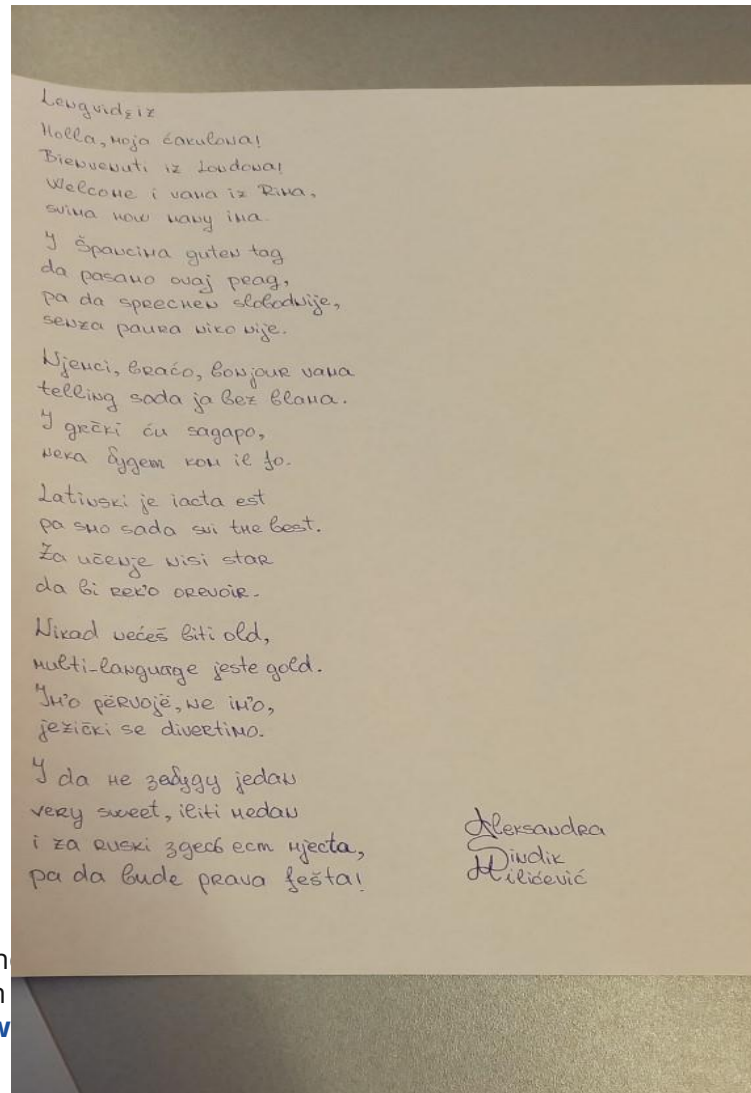 Lengvidziz
Holla, moja ćakulona!
Bienvenuti iz Londona!
Welcome i vama iz Rima,
svima how many ima.
I Špancima guten tag
da pasamo ovaj prag,
pa da sprechen slobodnije,
senza paura niko nije.
Njemci, braćo, bonjour vama
telling sada ja bez blama.
I grčki ću sagapo,
neka будет kom il fo.
Latinski je iacta est
pa smo sada svi the best.
Za učenje nisi star
da bi rek'o orevoir.
Nikad nećeš biti old,
multi-language jeste gold.
Im'o përvojë, ne im'o,
jezički se divertimo.
I da не забуду jedan
very sweet, iliti medan
i za ruski здесь ест mjecta,
pa da bude prava fešta!
Aleksandra
Sindik
Milićević